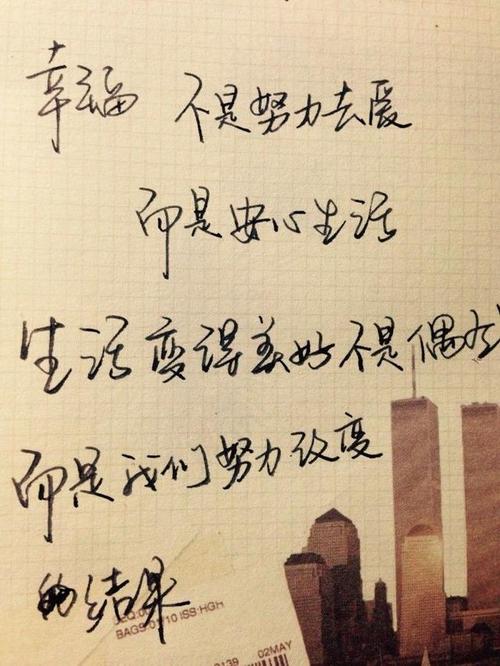 幸福 不是努力去爱
而是安心生活
生活变得美好不是偶然
而是我们努力改变
的结果
BAGS 01/10 ISS:HGH
02MAY